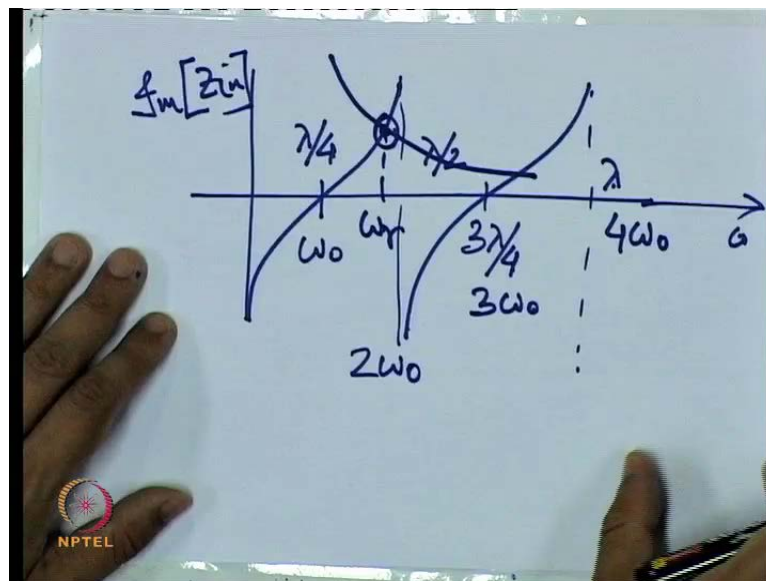 Im[Zin]
λ/4 λ/2 λ
ω0 ωr 3λ/4 4ω0 ω
3ω0
2ω0
NPTEL